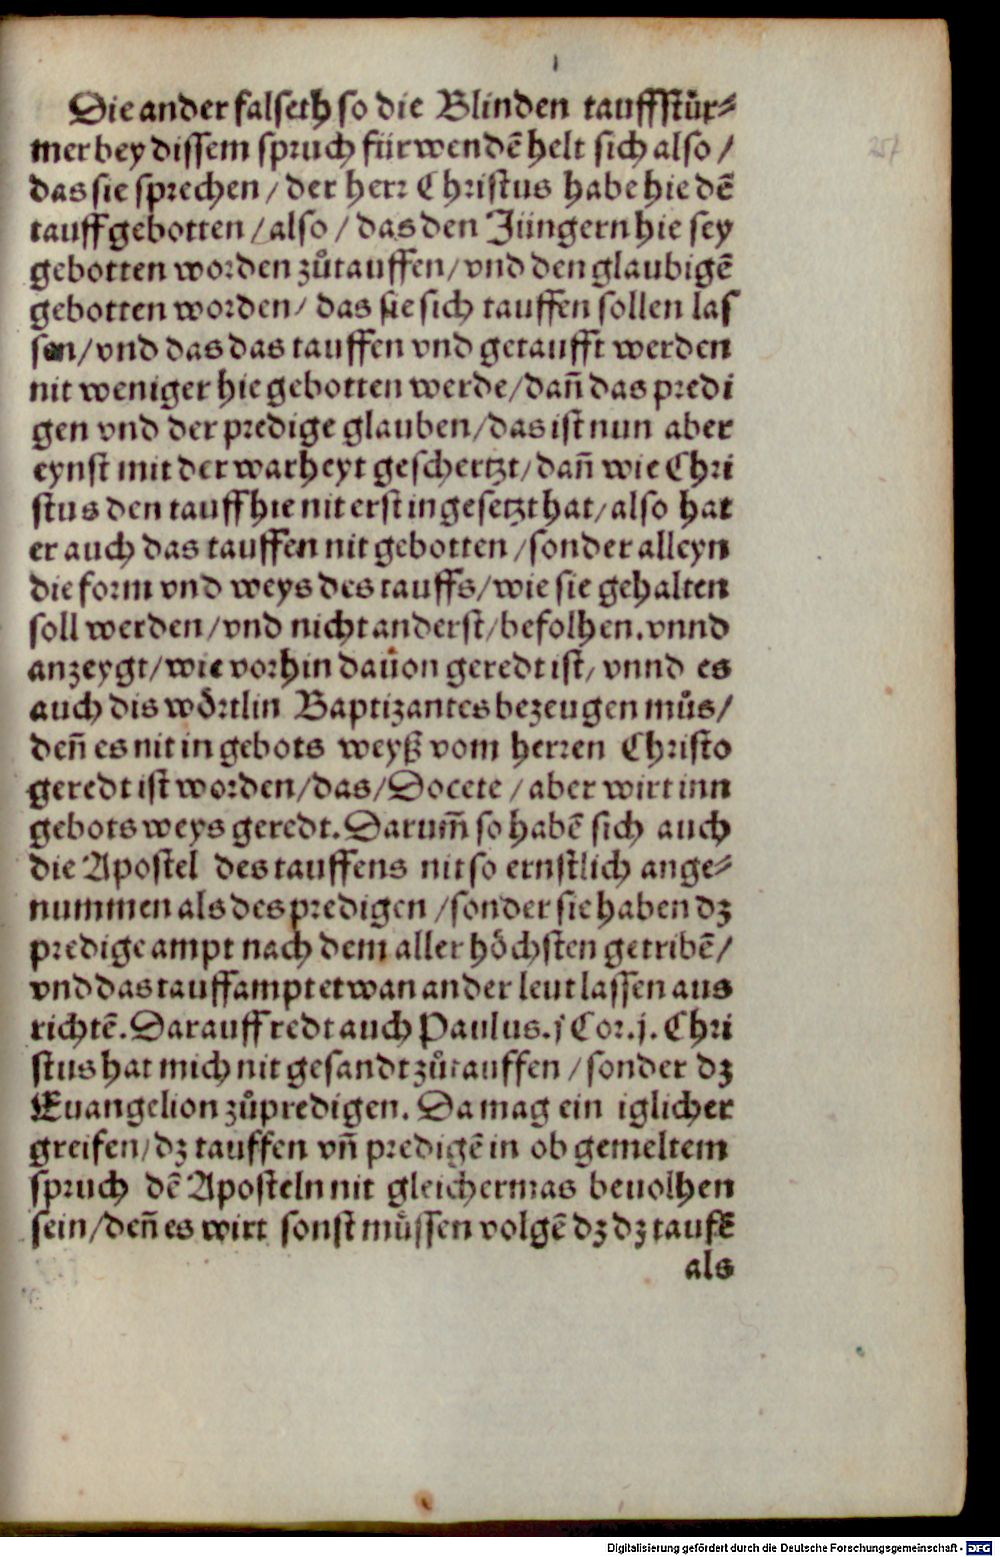 Die ander falseth so die Blinden tauffstür⸗
mer bey dissem spruch fürwendē helt sich also /
das sie sprechen / der herr Christus habe hie dē
tauff gebotten / also / das den Jüngern hie sey
gebotten worden zůtauffen / vnd den glaubigē
gebotten worden / das sie sich tauffen sollen las
sen / vnd das das tauffen vnd getaufft werden
nit weniger hie gebotten werde / dañ das predi
gen vnd der predige glauben / das ist nun aber
eynst mit der warheyt geschertzt / dañ wie Chri
stus den tauff hie nit erst ingesetzt hat / also hat
er auch das tauffen nit gebotten / sonder alleyn
die form vnd weys des tauffs / wie sie gehalten
soll werden / vnd nicht anderst / befolhen. vnnd
anzeygt / wie vorhin dauon geredt ist / vnnd es
auch dis wörtlin Baptizantes bezeugen můs /
deñ es nit in gebots weyß vom herren Christo
geredt ist worden / das / Docete / aber wirt inn
gebots weys geredt. Darum̃ so habē sich auch
die Apostel des tauffens nit so ernstlich ange⸗
nummen als des predigen / sonder sie haben dz
predige ampt nach dem aller höchsten getribē /
vnd das tauffampt etwan ander leut lassen aus
richtē. Darauff redt auch Paulus. j Cor. j. Chri
stus hat mich nit gesandt zůtauffen / sonder dz
Euangelion zůpredigen. Da mag ein iglicher
greifen / dz tauffen vñ predigē in ob gemeltem
spruch dē Aposteln nit gleichermas beuolhen
sein / deñ es wirt sonst müssen volgē dz dz taufē
als
257
Digitalisierung gefördert durch die Deutsche Forschungsgemeinschaft - DFG